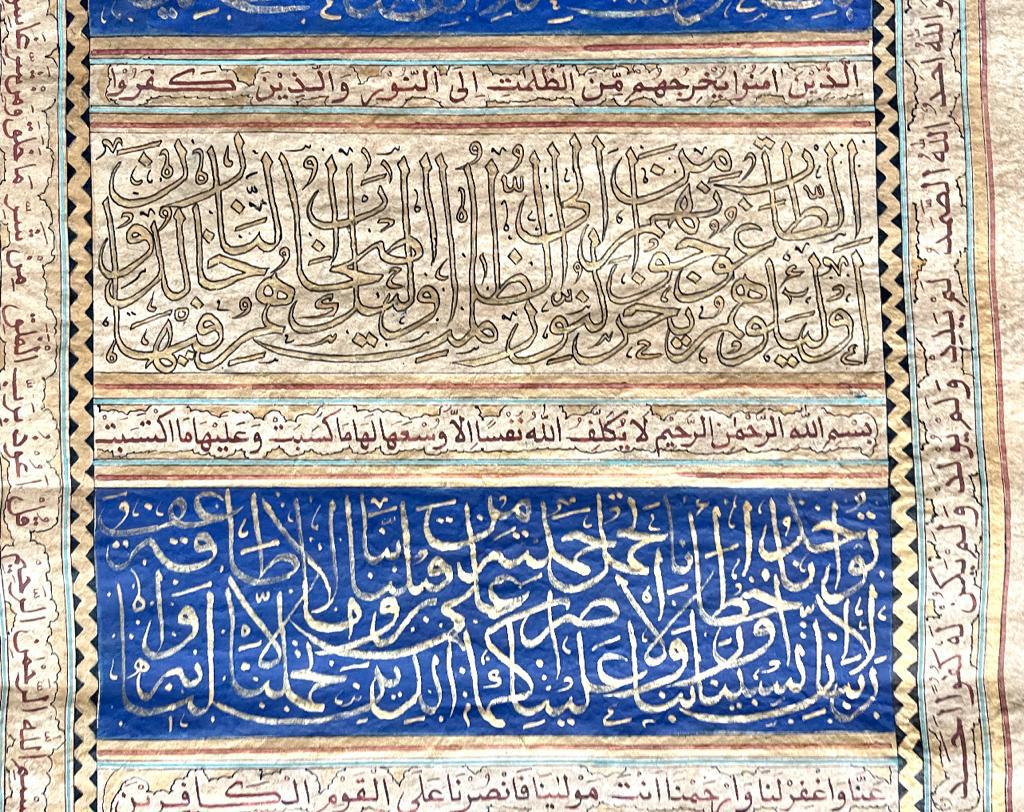 الَّذِينَ امَنُوا يُخْرِجُهُمْ مِّنَ الظُّلُمٰتِ اِلَى النُّوْرِ وَالَّذِيْنَ كَفَرُوْا
اَوْلِيَاؤُهُمُ الطَّاغُوتُ يُخْرِجُونَهُمْ مِنَ النُّوْرِ اِلَى الظُّلُمٰتِ اُولٰئِكَ اَصْحَابُ النَّارِ هُمْ فِيْهَا خَالِدُوْنَ
بِسْمِ اللهِ الرَّحْمٰنِ الرَّحِيْمِ لَا يُكَلِّفُ اللهُ نَفْسًا اِلَّا وُسْعَهَا لَهَا مَا كَسَبَتْ وَعَلَيْهَا مَا اكْتَسَبَتْ
رَبَّنَا لَا تُؤَاخِذْنَا اِنْ نَسِيْنَا اَوْ اَخْطَأْنَا رَبَّنَا وَلَا تَحْمِلْ عَلَيْنَا اِصْرًا كَمَا حَمَلْتَهُ عَلَى الَّذِيْنَ مِنْ قَبْلِنَا رَبَّنَا وَلَا تُحَمِّلْنَا مَا لَا طَاقَةَ لَنَا بِهِ وَاعْفُ
عَنَّا وَاغْفِرْ لَنَا وَارْحَمْنَا اَنْتَ مَوْلٰينَا فَانْصُرْنَا عَلَى الْقَوْمِ الْكَافِرِيْنَ
الله اَحَدٌ اَللهُ الصَّمَدُ لَمْ يَلِدْ وَلَمْ يُوْلَدْ وَلَمْ يَكُنْ لَهُ كُفُوًا اَحَدٌ
بِسْمِ اللهِ الرَّحْمٰنِ الرَّحِيْمِ قُلْ اَعُوْذُ بِرَبِّ الْفَلَقِ مِنْ شَرِّ مَا خَلَقَ وَمِنْ شَرِّ